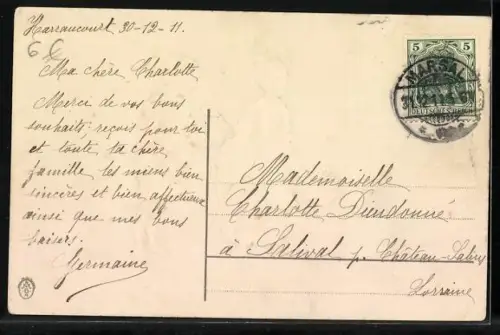 Harraucourt 30-12-11.
Ma chère Charlotte
Merci de vos bons
souhaits; reçois pour toi
et toute ta chère
famille les miens bien
sincères et bien affectueux
ainsi que mes bons
baisers.
Germaine
5 5
DEUTSCHES REICH
MARSAL
Mademoiselle
Charlotte Dieudonné
à Salival p. Château-Salins
Lorraine